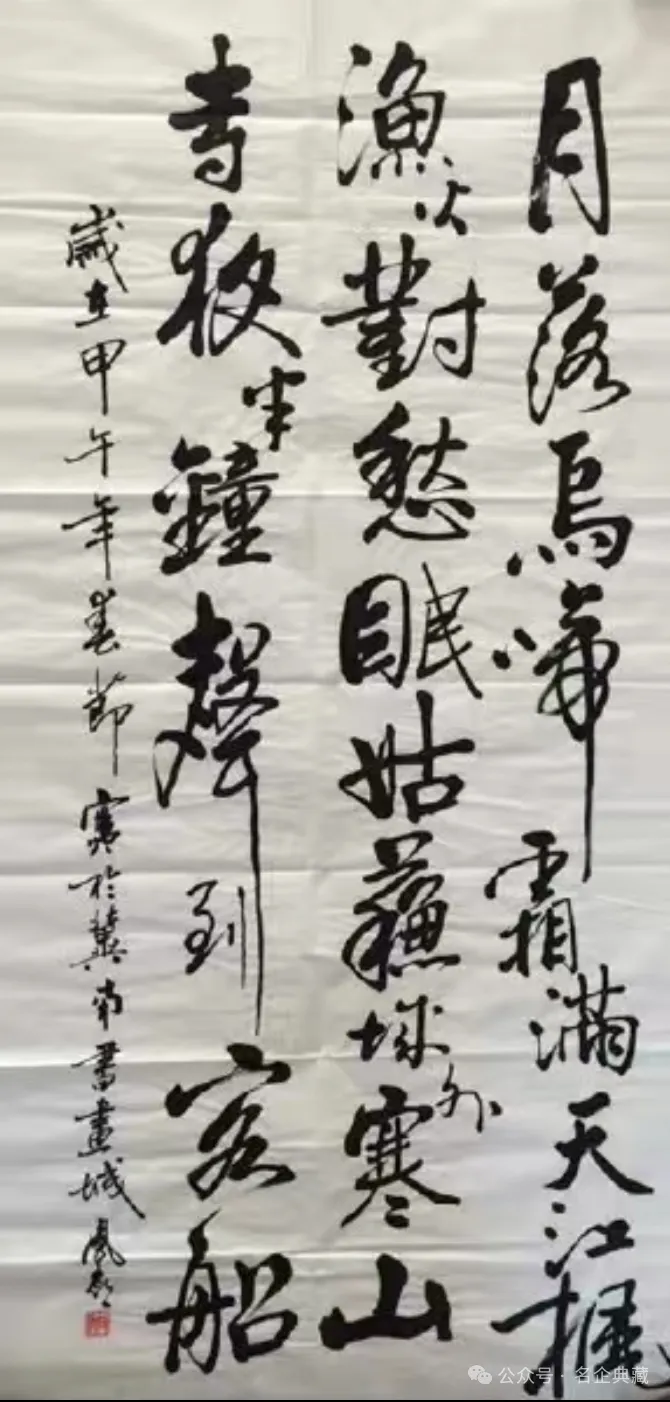 月落烏啼霜滿天江楓
漁火對愁眠姑蘇城外寒山
寺夜半鐘聲到客船
歲在甲午年春節寫於冀南書畫城
公众号·名企典藏